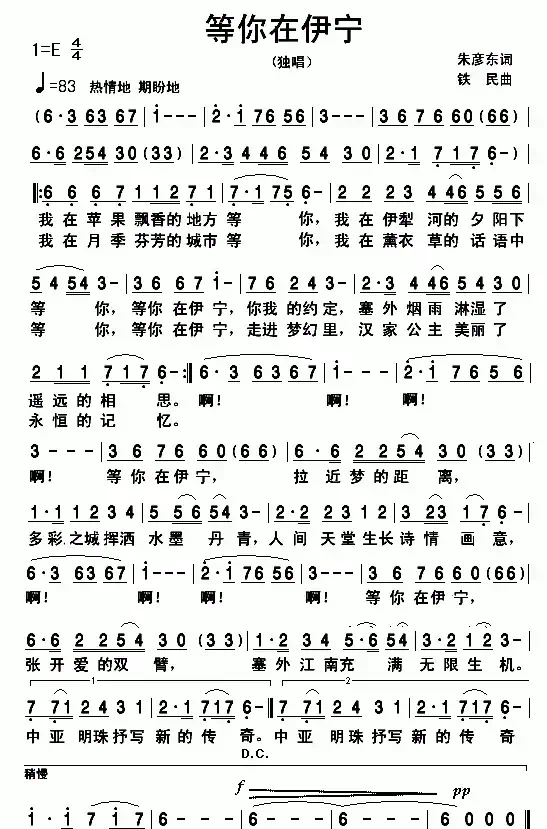 等你在伊宁
1=E 4/4
（独唱）
朱彦东词
♩=83 热情地 期盼地
铁 民曲
(6·3 63 67 | i - - - | 2·1 76 56 | 3 - - - | 3 6 7 6 60 (66) |
6·6 254 30 (33) | 2·3 446 54 30 | 2·1 717 6-) |
‖:6 6 6 7 1127 1 | 7·175 6- | 2 2 23 446 556 |
我在苹果飘香的地方等 你，我在伊犁 河的夕阳下
我在月季芬芳的城市等 你，我在薰衣 草的话语中
5454 3- | 36 67 i- | 76 24 3- | 2·3 446 5430 |
等 你，等你在伊宁，你我的约定，塞外烟雨 淋湿了
等 你，等你在伊宁，走进梦幻里，汉家公主 美丽了
2 1 1 717 6-:‖ 6·3 6367 | i - - - | 2·1 765 6 |
遥远的相 思。啊！ 啊！ 啊！
永恒的记 忆。
3 - - - | 3 6 76 60 (66) | 6·6 2254 30 (33) |
啊！ 等你在伊宁， 拉近梦的距 离，
1·1 1234 | 5 56 54 3- | 2·2 2312 | 3 23 17 6- |
多彩之城挥洒 水墨 丹青，人间 天堂生长诗情 画意，
6·3 63 67 | i - - - | 2·1 76 56 | 3 - - - | 3 6 76 60 (66) |
啊！ 啊！ 啊！ 啊！ 等你在伊宁，
6·6 2254 30 (33) | 1·2 34 5·6 54 | 3·2 12 3- |
张开爱的双 臂， 塞外江南充 满 无限生机。
1 2
7 71 243 1 | 2·1 717 6- :‖ 7 71 243 1 | 2·1 717 6- |
中亚 明珠抒写 新的传 奇。中亚 明珠抒写 新的传 奇
D.C.
稍慢
f pp
1·1 717 6- | 6 - - - | 6 - 6 - | 6 - - - ‖